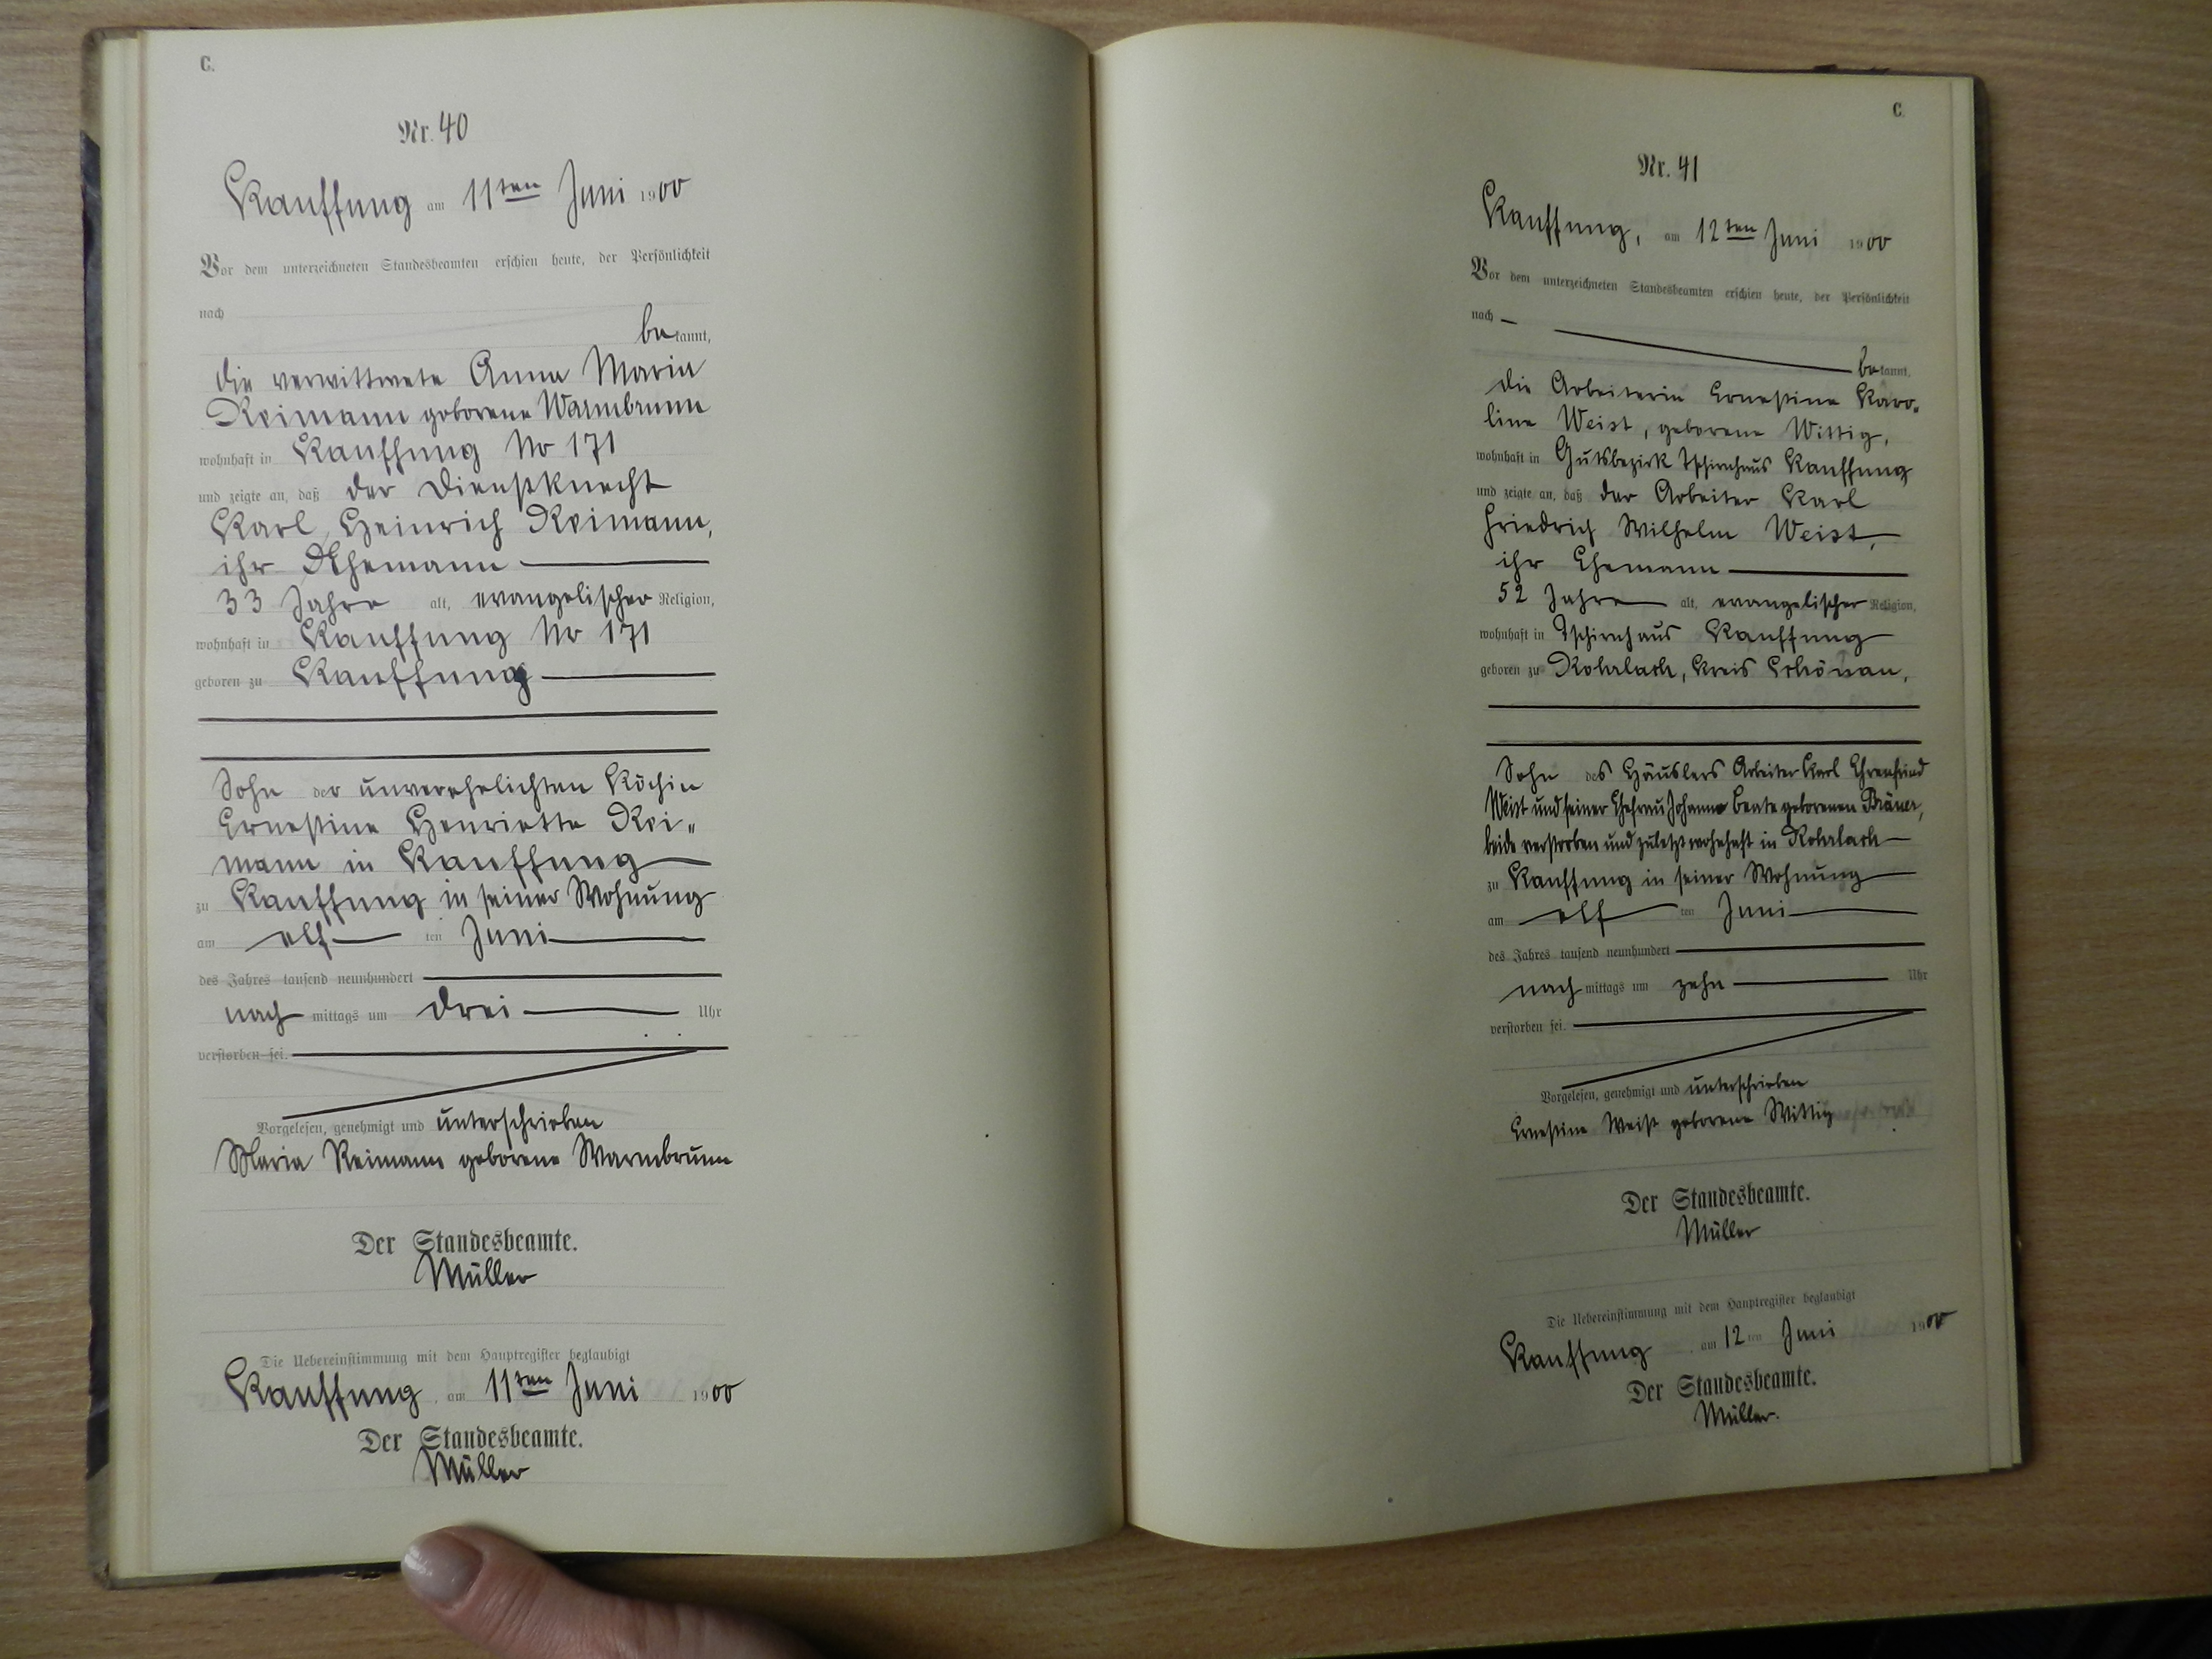 C.
Nr. 40
Kauffung am 11ten Juni 1900
Vor dem unterzeichneten Standesbeamten erschien heute, der Persönlichkeit
nach
bekannt,
die verwittwete Anna Maria
Reimann geborene Warmbrunn
wohnhaft in Kauffung No 171
und zeigte an, daß der Dienstknecht
Karl Heinrich Reimann,
ihr Ehemann
33 Jahre alt, evangelischer Religion,
wohnhaft in Kauffung No 171
geboren zu Kauffung
Sohn der unverehelichten Köchin
Ernestine Henriette Rei-
mann in Kauffung
zu Kauffung in seiner Wohnung
am elf ten Juni
des Jahres tausend neunhundert
nach mittags um drei Uhr
verstorben sei.
Vorgelesen, genehmigt und unterschrieben
Maria Reimann geborene Warmbrunn
Der Standesbeamte.
Müller
Die Uebereinstimmung mit dem Hauptregister beglaubigt
Kauffung, am 11ten Juni 1900
Der Standesbeamte.
Müller
C.
Nr. 41
Kauffung, am 12ten Juni 1900
Vor dem unterzeichneten Standesbeamten erschien heute, der Persönlichkeit
nach
bekannt,
die Arbeiterin Ernestine Karo-
line Weist, geborene Wittig,
wohnhaft in Gutsbezirk Tschirnhaus Kauffung
und zeigte an, daß der Arbeiter Karl
Friedrich Wilhelm Weist,
ihr Ehemann
52 Jahre alt, evangelischer Religion,
wohnhaft in Tschirnhaus Kauffung
geboren zu Rohrlach, Kreis Schönau,
Sohn des Häuslers Arbeiter Karl Ehrenfried
Weist und seiner Ehefrau Johanne Beate geborenen
beide verstorben und zuletzt wohnhaft in Rohrlach
zu Kauffung in seiner Wohnung
am elf ten Juni
des Jahres tausend neunhundert
nach mittags um zehn Uhr
verstorben sei.
Vorgelesen, genehmigt und unterschrieben
Ernestine Weist geborene Wittig
Der Standesbeamte.
Müller
Die Uebereinstimmung mit dem Hauptregister beglaubigt
Kauffung am 12ten Juni 1900
Der Standesbeamte.
Müller.